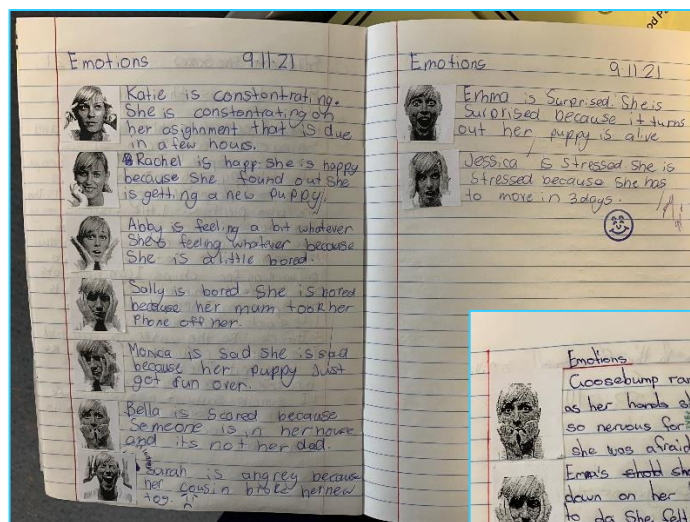 Emotions 9.11.21
Katie is constontrating.
She is constantrating on
her asignment that is due
in a few hours.
Rachel is happ. she is happy
because she found out she
is getting a new puppy.
Abby is feeling a bit whatever
She's feeling whatever because
She is a little bored.
Sally is bored. She is bored
because her mum took her
Phone off her.
Monica is sad she is sad
because her puppy Just
got run over.
Bella is scared because
Someone is in her house
and its not her dad.
Sarah is angrey because
her cousin broke her new
toy.
Emotions 9.11.21
Emma is Surprised. She is
Surprised because it turns
out her puppy is alive
Jessica is stressed. She is
stressed because she has
to move in 3 days.
Emotions
Goosebump ran
as her hands
so nervous for
she was afraid
Emma's
down on her
to do She felt